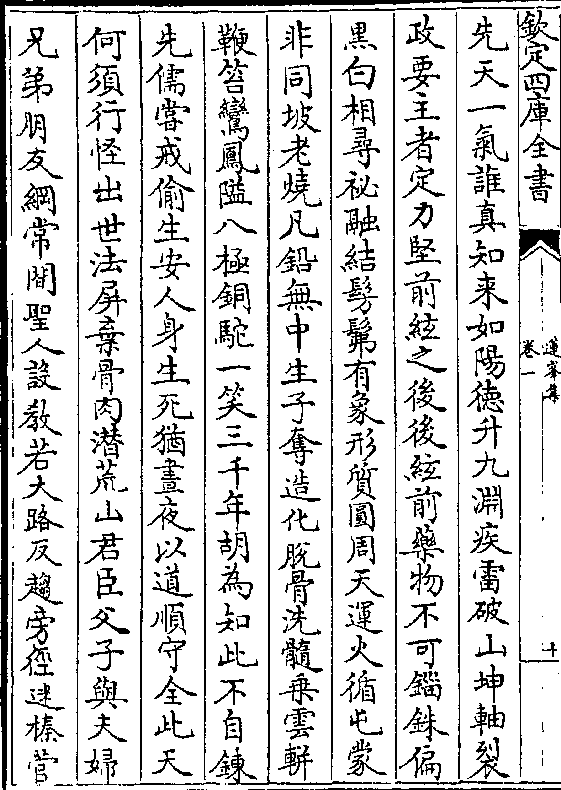 欽定四庫全書
蓮峯集
卷一
十
先天一氣誰真知来如陽德升九淵疾雷破山坤軸裂
政要主者定力堅前絃之後後絃前藥物不可錙銖偏
黒白相尋祕融結髣髴有象形質圓周天運火循屯蒙
非同坡老燒凡鉛無中生子奪造化脫骨洗髓乗雲軿
鞭笞鸞鳳隘八極銅駝一笑三千年胡為知此不自鍊
先儒當戒偷生安人身生死猶晝夜以道順守全此天
何須行怪出世法屏棄骨肉潛荒山君臣父子與夫婦
兄弟朋友綱常間聖人設教若大路反趨旁徑迷榛菅